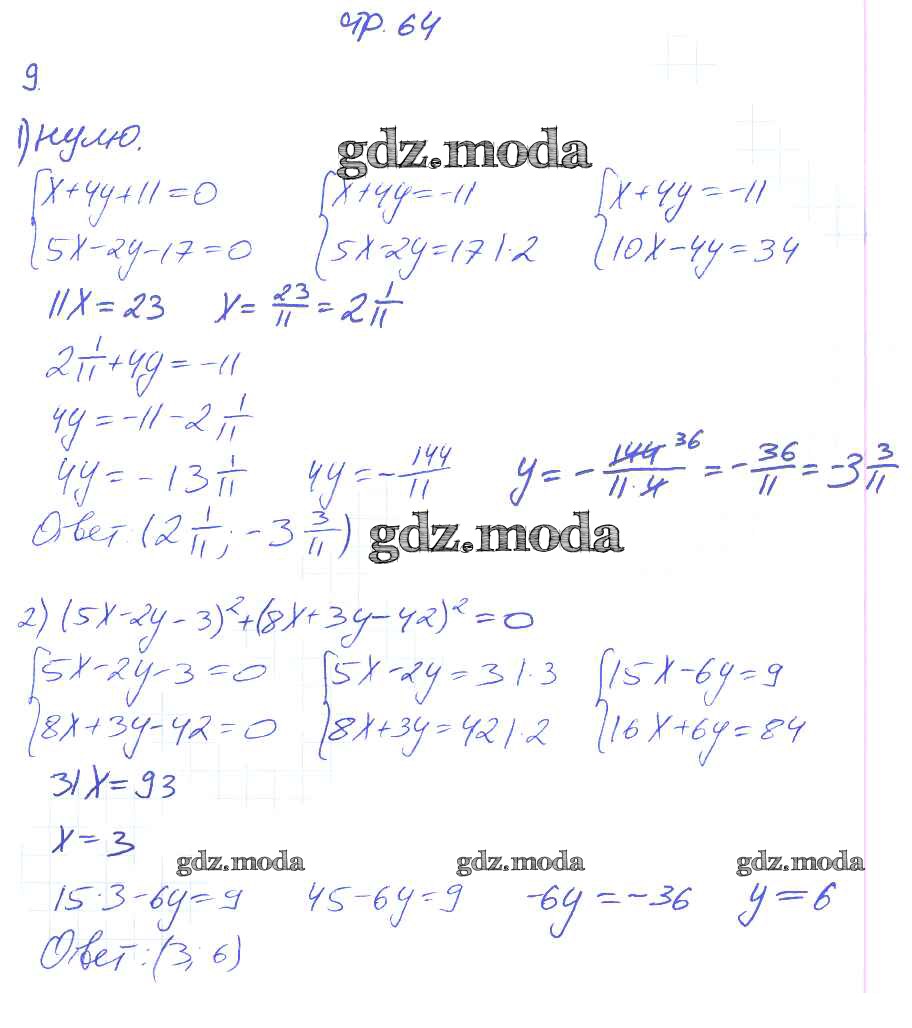 стр. 64
9.
1) нулю.
gdz.moda
{x+4y+11=0 {x+4y=-11 {x+4y=-11
{5x-2y-17=0 {5x-2y=17 |·2 {10x-4y=34
11x=23 x=23/11=2 1/11
2 1/11+4y=-11
4y=-11-2 1/11
4y=-13 1/11 4y=-144/11 y=-144 36/11·4=-36/11=-3 3/11
Ответ: (2 1/11; -3 3/11)
gdz.moda
2) (5x-2y-3)²+(8x+3y-42)²=0
{5x-2y-3=0 {5x-2y=3 |·3 {15x-6y=9
{8x+3y-42=0 {8x+3y=42 |·2 {16x+6y=84
31x=93
x=3
gdz.moda gdz.moda gdz.moda
15·3-6y=9 45-6y=9 -6y=-36 y=6
Ответ: (3; 6)